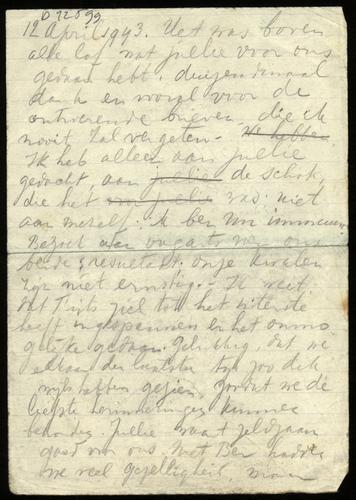 D 12599
12 April 1943. Het was boven
alle lof wat jullie voor ons
gedaan hebt. duizendmaal
dank en vooral voor de
ontroerende brieven, die ik
nooit zal vergeten. We hebben
Ik heb alleen aan jullie
gedacht, aan jullie de schok,
die het was, niet
aan mezelf. Ik ben nu immuun.
Bezoek aan ons
beide resultaat: onze kwalen
zijn niet ernstig. - Ik weet
dat zich tot het uiterste
heeft ingespannen en het onmo-
gelijke gedaan. Gelukkig, dat we
elkaar den laatsten tijd zoo dik-
wijls hebben gezien, zoodat we de
liefste herinneringen kunnen
behouden. Jullie waart zeldzaam
goed voor ons. Met Ben hadden
we veel gezelligheid, maar